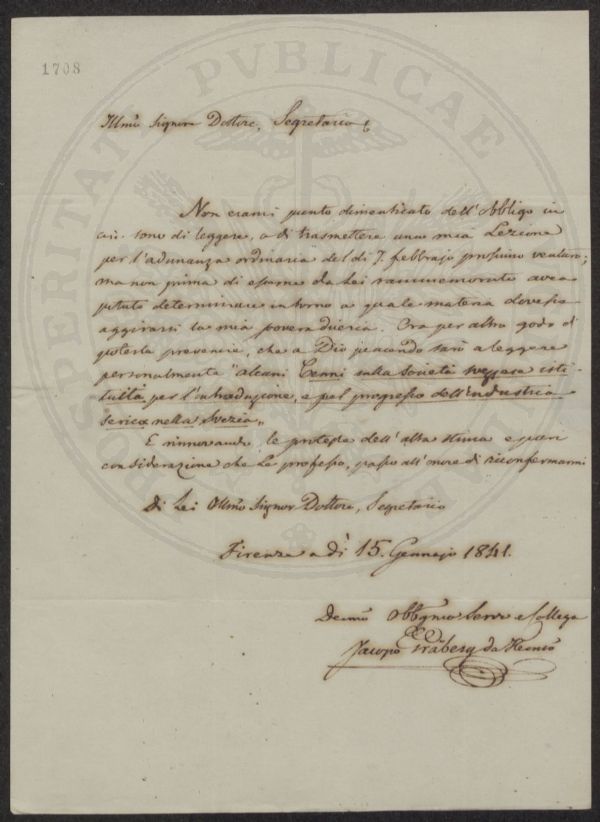 1708
PROSPERITATI PVBLICAE
Illmo Signor Dottore, Segretario
Non erami punto dimenticato dell'Obbligo in
cui sono di leggere, o di trasmettere una mia Lezione
per l'adunanza ordinaria del dì 7. febbrajo prossimo venturo;
ma non prima di esserne da Lei rammemorato avea
potuto determinare intorno a quale materia dovesse
aggirarsi la mia povera diceria. Ora per altro godo di
poterla prevenire, che a Dio piacendo sarò a leggere
personalmente "alcuni Cenni sulla Società svezzese isti-
tuita per l'introduzione, e pel progresso dell'industria
serica nella Svezia".
E rinnovando le proteste dell'alta stima e pari
considerazione che Le professo, passo all'onore di riconfermarmi
Di Lei Illmo Signor Dottore, Segretario
Firenze a dì 15. Gennajo 1841.
Devmo Obbgmo Serv e Collega
Jacopo Gråberg da Hemsö